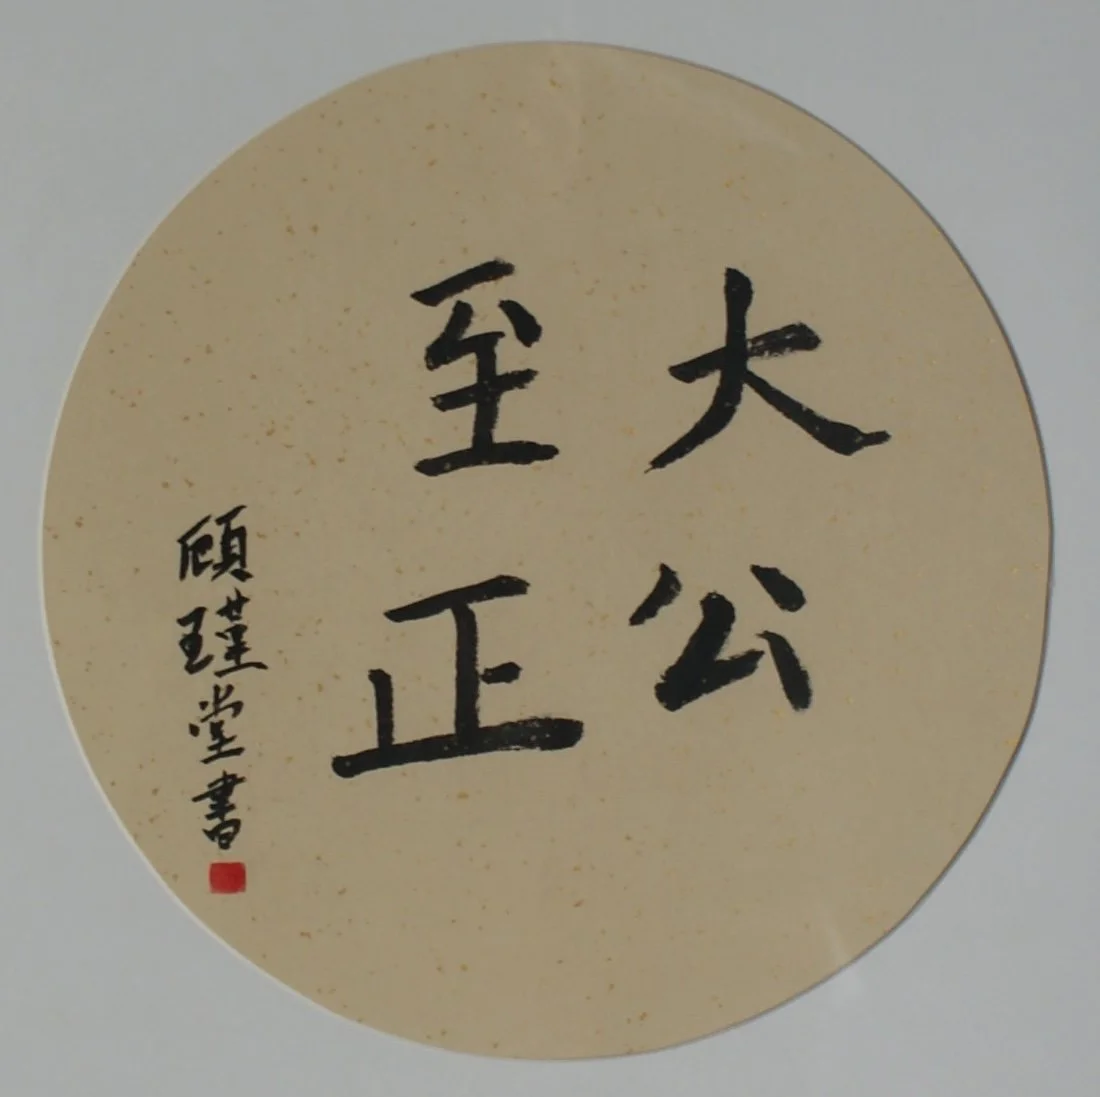 大公
至正
顾瑾堂書